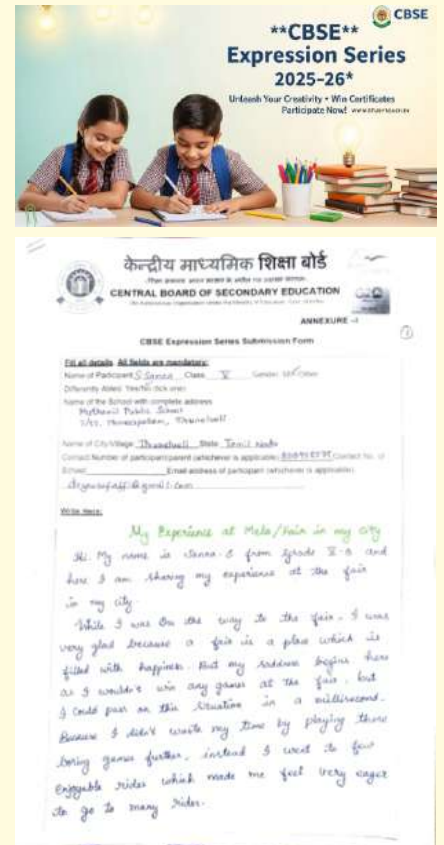 CBSE
**CBSE**
Expression Series
2025-26*
Unleash Your Creativity • Win Certificates
Participate Now!
केन्द्रीय माध्यमिक शिक्षा बोर्ड
CENTRAL BOARD OF SECONDARY EDUCATION
ANNEXURE - I
CBSE Expression Series Submission Form
Fill all details. All fields are mandatory:
Name of Participant S. Class V Gender
Differently Abled: Yes/No (tick one)
Name of the School with complete address
Public School
Name of City/Village State Tamil Nadu
Contact Number of participant/parent (whichever is applicable) Contact No. of
School Email address of participant (whichever is applicable)
@gmail.com
Write Here:
My Experience at Mela/Fair in my city
Hi. My name is from grade V and
here I am sharing my experience at the fair
in my city.
While I was on the way to the fair. I was
very glad because a fair is a place which is
filled with happiness. But my saddness begins here
as I wouldn't win any games at the fair. but
I could pass on this situation in a millisecond.
Because I didn't waste my time by playing those
boring games further, instead I went to few
enjoyable rides which made me feel very eager
to go to many rides.